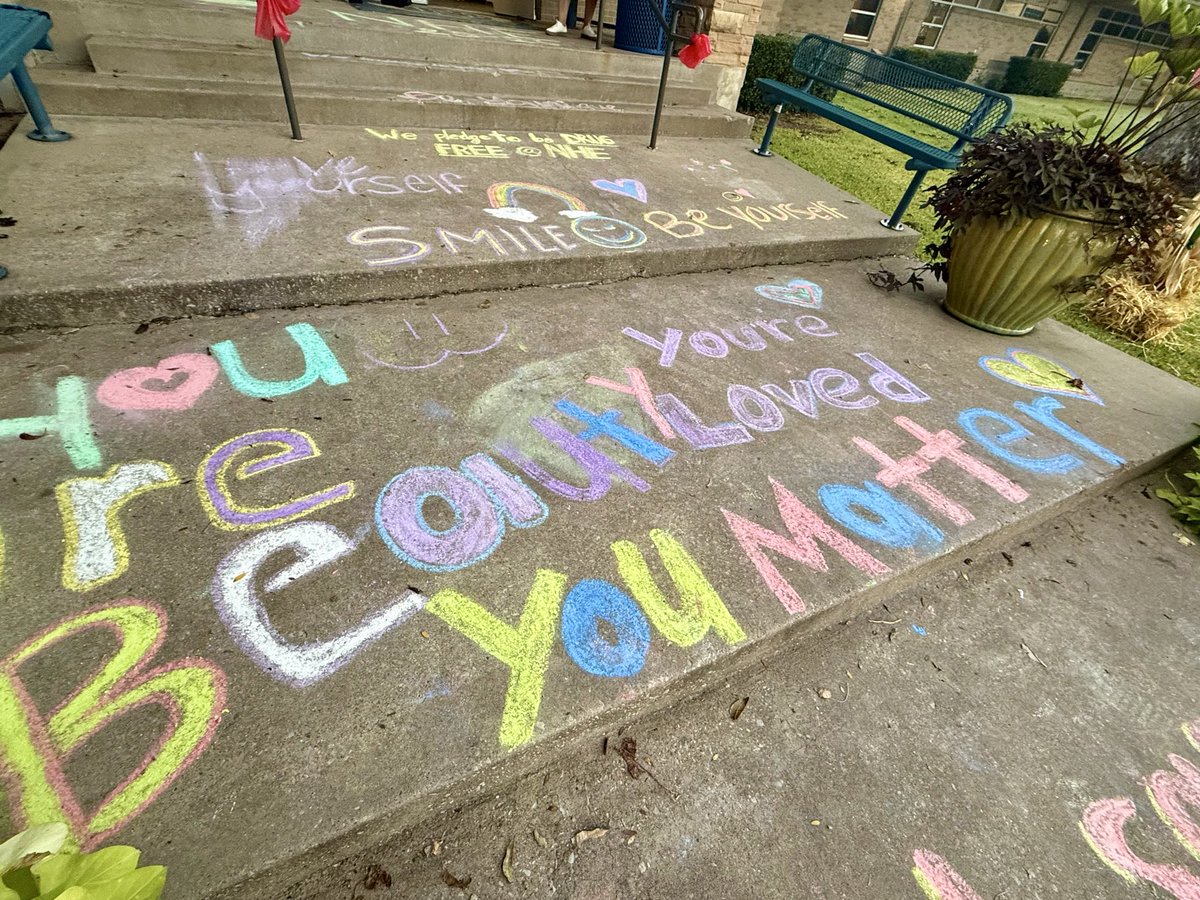 We pledge to be DRUG
FREE @ NHE
Love yourself
SMILE
Be yourself
You
re
Beauty
You're
Loved
You Matter